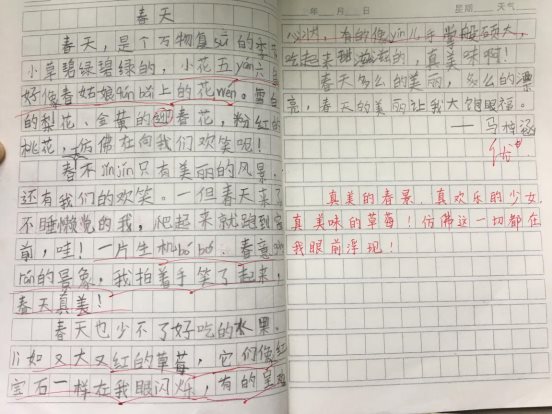 春天
春天，是个万物复sū的季节
小草碧绿碧绿的，小花五yán六
好像春姑娘qún bǎi上的花wén。雪白
的梨花、金黄的迎春花，粉红的
桃花，仿佛在向我们欢笑呢！
春不jǐn jǐn只有美丽的风景，
还有我们的欢笑。一但春天来了
不睡懒觉的我，爬起来就跑到窗
前，哇！一片生机bó bó、春意
rán的景象，我拍着手笑了起来，
春天真美！
春天也少不了好吃的水果。
lì如又大又红的草莓，它们像红
宝石一样在我眼闪烁，有的
年 月 日 星期 天气
有的像yīn儿手掌般硕大，
吃起来甜滋滋的，真美味啊！
春天多么的美丽，多么的漂
亮，春天的美丽让我大饱眼福。
优
真美的春景，真欢乐的少女，
真美味的草莓！仿佛这一切都在
我眼前浮现！